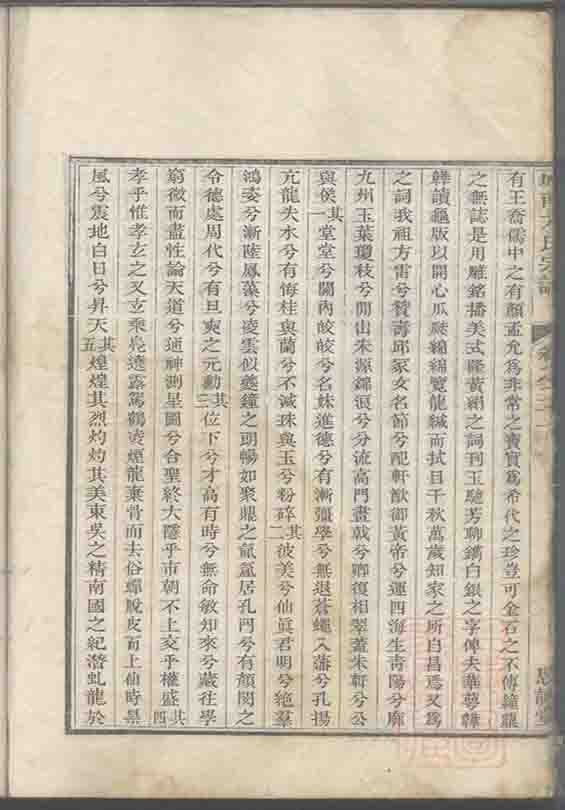 有王喬儒中之有顏孟允為非常之寶實為希代之珍豈可金石之不傳鐘鼎
之無誌是用雕銘播美式隆黃絹之詞刊玉馳芳聊鐫白銀之字俾夫華萼韡
韡讀龜版以開心瓜瓞綿綿覽龍緘而拭目千秋萬歲知家之所自昌焉又為
之詞我祖方雷兮贊壽邱冢女名節兮配軒猷御黃帝兮運四海生青陽兮廓
九州玉葉瓊枝兮開山朱源錦浪兮分流高門畫戟兮卿復相翠蓋朱軒兮公
與侯其一堂堂兮關內皎皎兮名姝進德兮有漸彊學兮無退蒼蠅入藩兮孔揚
亢龍失水兮有悔桂與蘭兮不減珠與玉兮粉碎其二彼美兮仙眞君明兮絶羣
鴻姿兮漸陸鳳藻兮凌雲似蕤鐘之朗暢如聚鼎之氤氳居孔門兮有顏閔之
令德處周代兮有旦奭之元勳其三位下兮才高有時兮無命敏知來兮藏往學
窮微而盡性論天道兮通神測星圖兮合聖終大隱乎市朝不上交乎權盛其四
孝乎惟孝玄之又玄乘鳧遠露駕鶴凌煙龍棄骨而去俗蟬脫皮而上仙時暴
風兮震地白日兮昇天其五煌煌其烈灼灼其美東吳之精南國之紀潛虬龍於
方氏宗譜